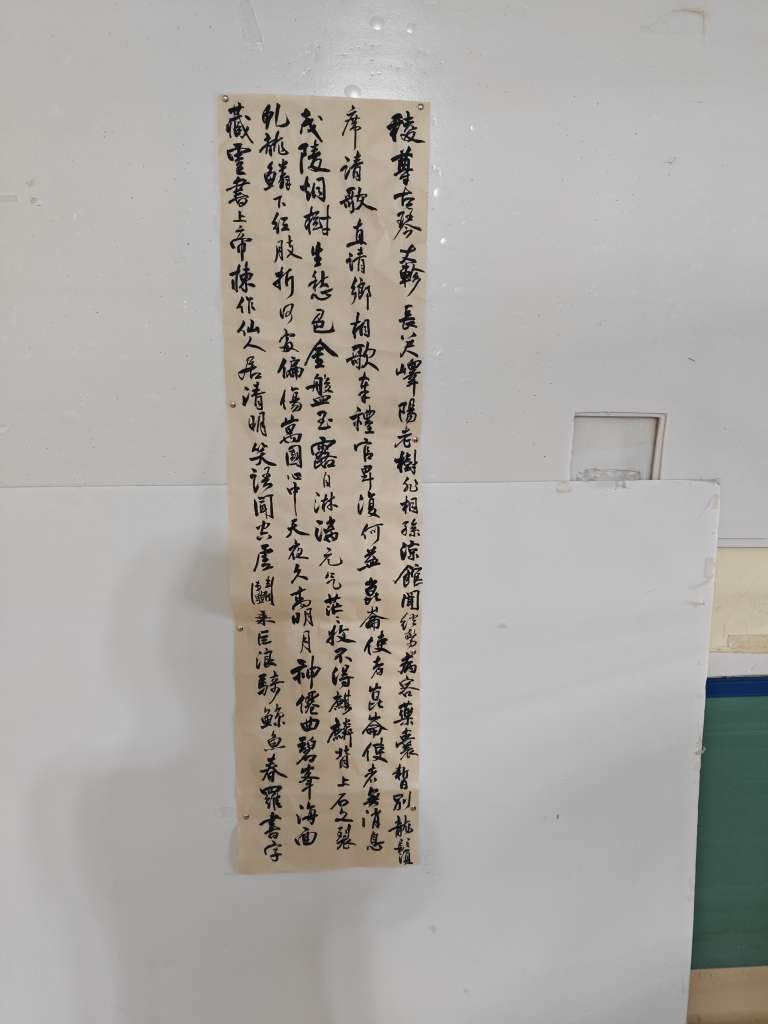 稜尊古琴大軫長八尺嶧陽老樹非桐孫涼館聞弦驚病客藥囊暫別龍鬚
席請歌直請卿相歌奉禮官卑復何益崑崙使者崑崙使者無消息
茂陵烟樹生愁色金盤玉露自淋漓元气茫〻收不得麒麟背上石文裂
虬龍鱗下紅肢折何處偏傷萬國心中天夜久高明月神僊曲碧峯海面
藏靈書上帝揀作仙人居清明笑語聞空虛鬭乘巨浪騎鯨魚春羅書字